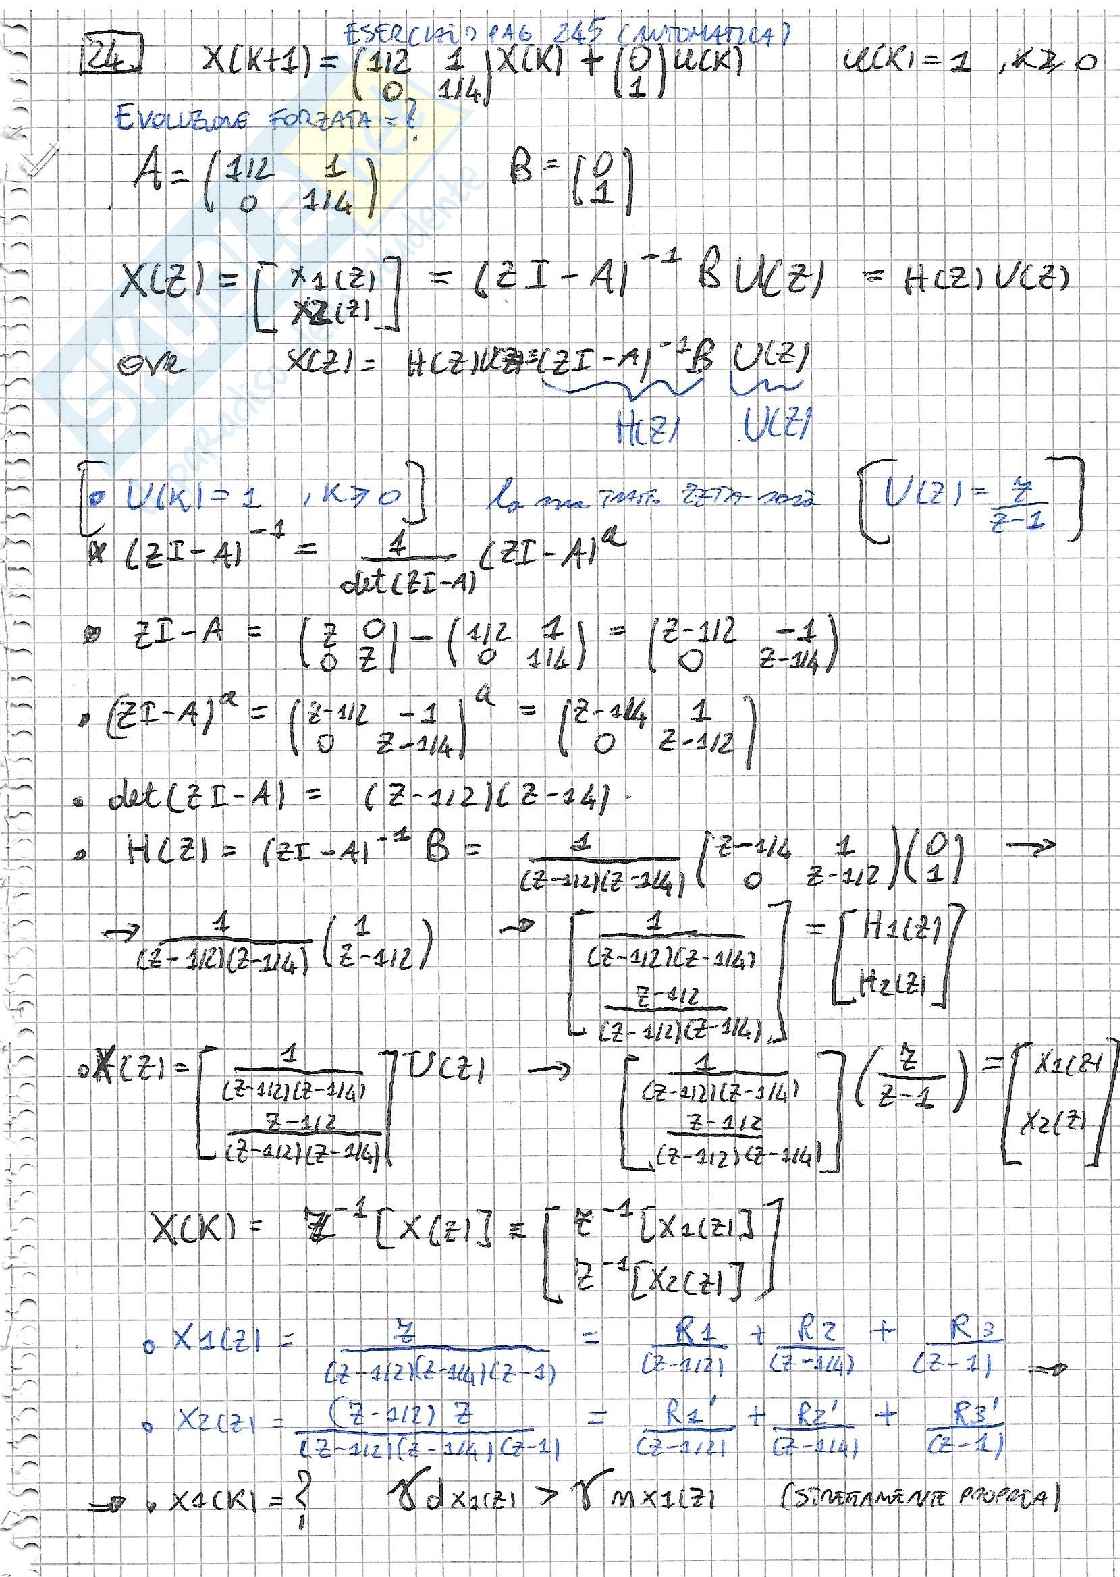 ESERCIZIO PAG 245 (AUTOMATICA)
24. X(K+1) = (1/2 1 0 1/4) X(K) + (0 1) U(K) U(K) = 1 , K≥0
EVOLUZIONE FORZATA = ?
A = (1/2 1 0 1/4) B = (0 1)
X(Z) = [X1(Z) X2(Z)] = (ZI-A)^-1 B U(Z) = H(Z) U(Z)
OVE X(Z) = H(Z) U(Z) = (ZI-A)^-1 B U(Z)
H(Z) U(Z)
[• U(K) = 1 , K≥0] la sua TRASF. ZETA sarà [U(Z) = Z/(Z-1)]
* (ZI-A)^-1 = 1/det(ZI-A) (ZI-A)^a
• ZI-A = (Z 0 0 Z) - (1/2 1 0 1/4) = (Z-1/2 -1 0 Z-1/4)
• (ZI-A)^a = (Z-1/2 -1 0 Z-1/4)^a = (Z-1/4 1 0 Z-1/2)
• det(ZI-A) = (Z-1/2)(Z-14).
• H(Z) = (ZI-A)^-1 B = 1/((Z-1/2)(Z-1/4)) (Z-1/4 1 0 Z-1/2)(0 1) →
→ 1/((Z-1/2)(Z-1/4)) (1 Z-1/2) → [1/((Z-1/2)(Z-1/4)) (Z-1/2)/((Z-1/2)(Z-1/4))] = [H1(Z) H2(Z)]
• X(Z) = [1/((Z-1/2)(Z-1/4)) (Z-1/2)/((Z-1/2)(Z-1/4))] U(Z) → [1/((Z-1/2)(Z-1/4)) (Z-1/2)/((Z-1/2)(Z-1/4))] (Z/(Z-1)) = [X1(Z) X2(Z)]
X(K) = Z^-1 [X(Z)] = [Z^-1[X1(Z)] Z^-1[X2(Z)]]
• X1(Z) = Z/((Z-1/2)(Z-1/4)(Z-1)) = R1/(Z-1/2) + R2/(Z-1/4) + R3/(Z-1) →
• X2(Z) = (Z-1/2) Z/((Z-1/2)(Z-1/4)(Z-1)) = R1'/(Z-1/2) + R2'/(Z-1/4) + R3'/(Z-1)
→ • X1(K) = ? γ d X1(Z) > γ n X1(Z) (STRETTAMENTE PROPRIA)